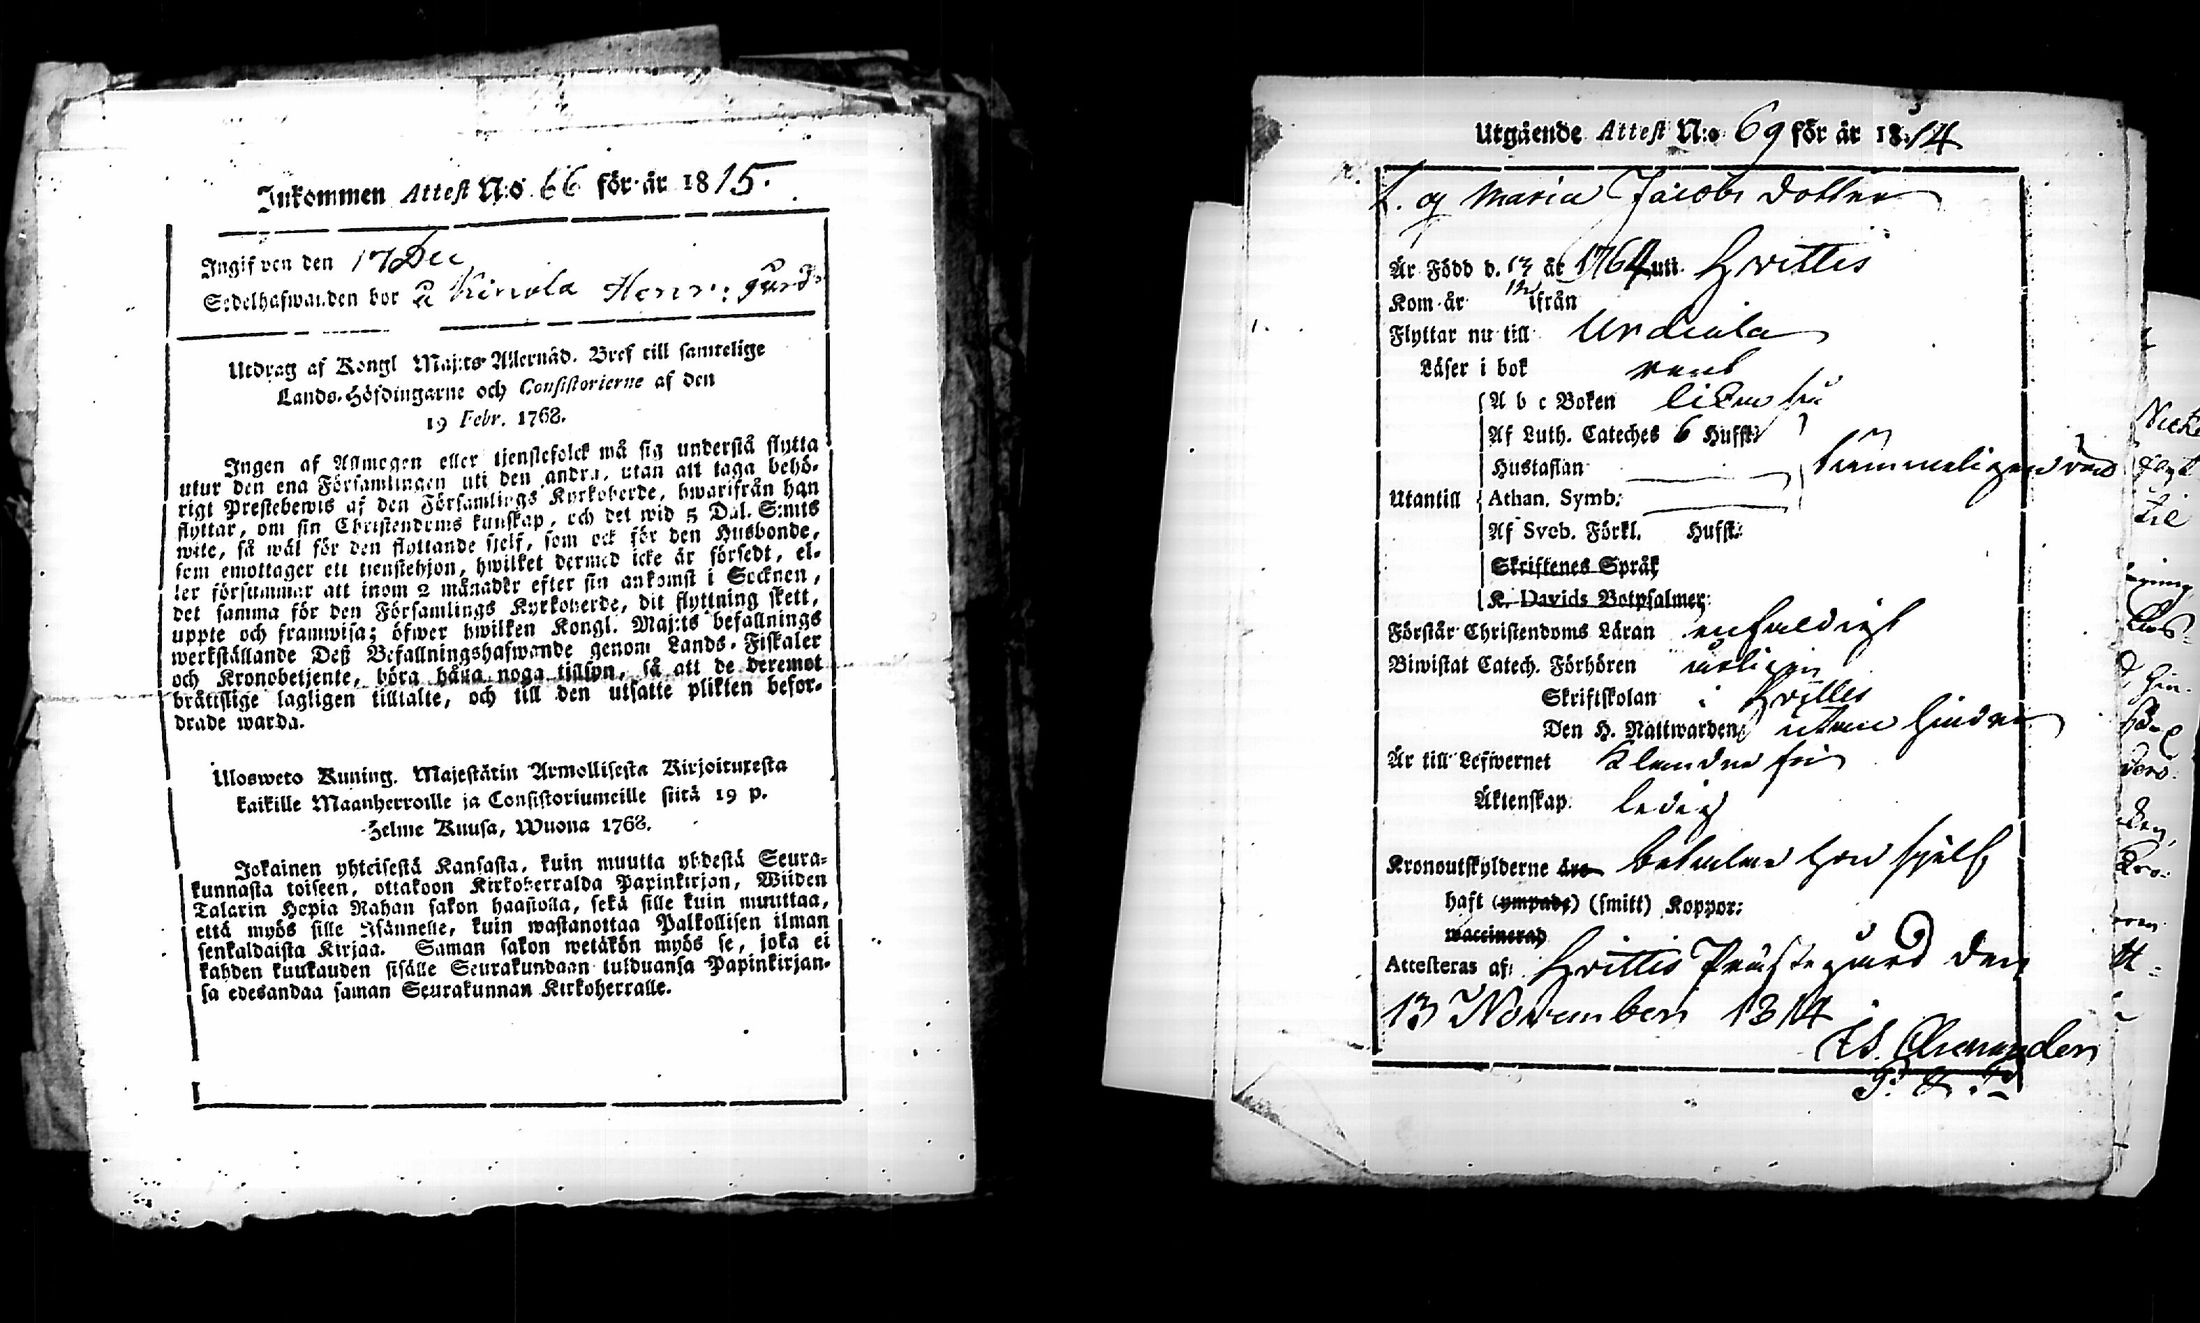 Inkommen Attest N:o 66 för år 1815.
Ingifven den 17 Dec
Sedelhafwanden bor å Kinola Henr: gård
Utdrag af Kongl Maj:ts Allernåd. Bref till samtelige
Lands-Höfdingarne och Consistorierne af den
19 Febr. 1768.
Ingen af Allmogen eller tjenstefolck må sig understå flytta
utur den ena Församlingen uti den andra, utan att taga behö-
rigt Prestebewis af den Församlings Kyrkoherde, hwarifrån han
flyttar, om sin Christendoms kunskap, och det wid 5 Dal. S:mts
wite, så wäl för den flyttande sjelf, som ock för den Husbonde,
som emottager ett tienstehjon, hwilket dermed icke är försedt, el-
ler försummar att inom 2 månader efter sin ankomst i Socknen,
det samma för den Församlings Kyrkoherde, dit flyttning skett,
uppte och framwisa; öfwer hwilken Kongl. Maj:ts befallnings
werkställande Deß Befallningshafwande genom Lands-Fiskaler
och Kronobetjente, böra hålla noga tillsyn, så att de deremot
bråttslige lagligen tilltalte, och till den utsatte plikten befor-
drade warda.
Ulosweto Kuning. Majestätin Armollisesta Kirjoituxesta
kaikille Maanherroille ja Consistoriumeille siitä 19 p.
Helme Kuusa, Wuona 1768.
Jokainen yhteisestä Kansasta, kuin muutta yhdestä Seura-
kunnasta toiseen, ottakoon Kirkoherralda Papinkirjan, Wiiden
Talarin Hopia Rahan sakon haastolla, sekä sille kuin muuttaa,
että myös sille Isännelle, kuin wastanottaa Palkollisen ilman
senkaldaista Kirjaa. Saman sakon wetäkön myös se, joka ei
kahden kuukauden sisälle Seurakundaan tulduansa Papinkirjan-
sa edesandaa saman Seurakunnan Kirkoherralle.
Utgående Attest N:o 69 för år 1814
Maria Jacobs dotter
Är Född d. 13 år 1764 uti Hvittis
Kom år ifrån
Flyttar nu till Urdiala
Läser i bok rent
A b c Boken likaså
Af Luth. Cateches 6 Hufst:
Hustaflan
Utantill Athan. Symb:
Af Sveb. Förkl. Hufst:
Skriftenes Språk
K. Davids Botpsalmer:
Förstår Christendoms Läran enfaldigt
Biwistat Catech. Förhören
Skriftskolan i Hvittis
Den H. Nattwarden utan hinder
Är till Lefwernet Klanderfri
Äktenskap ledig
Kronoutskylderne äro betalar hon sjelf
haft (ympade) (smitt) Koppor:
waccinerad
Attesteras af: Hvittis Prästegård den
13 November 1814